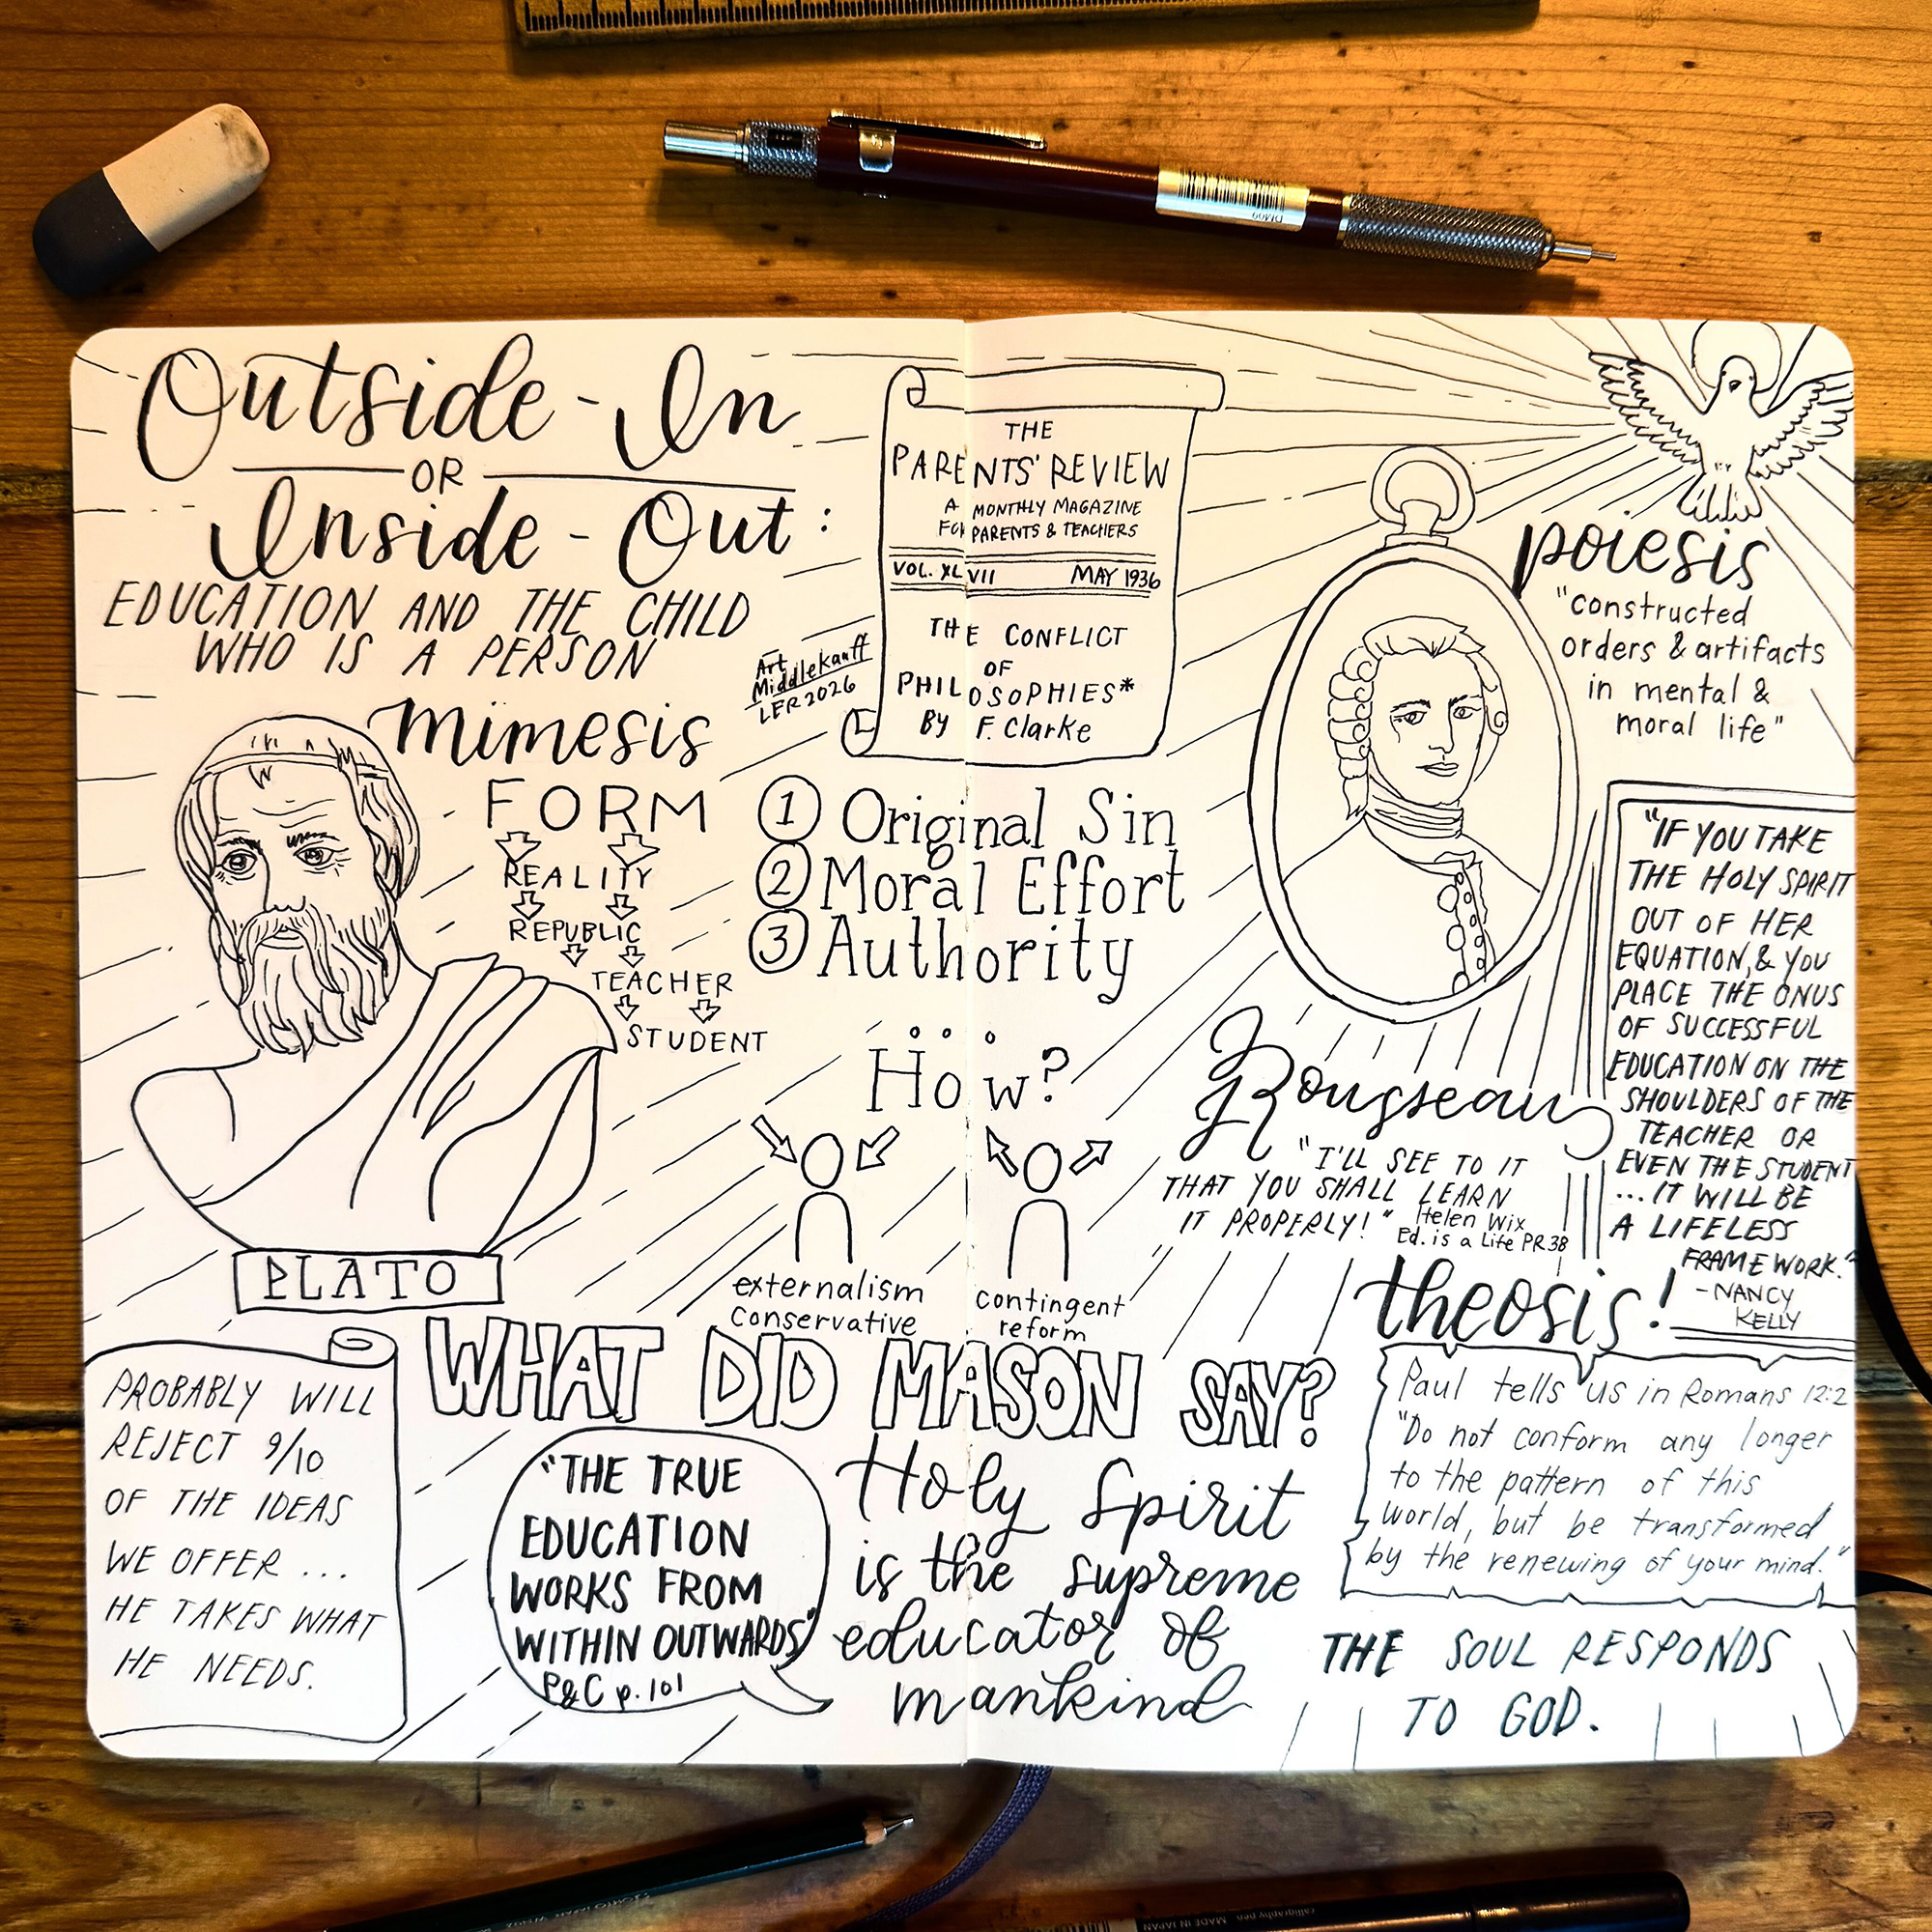 Outside-In
OR
Inside-Out:
EDUCATION AND THE CHILD
WHO IS A PERSON
Art
Middlekauff
LER 2026
THE
PARENTS' REVIEW
A MONTHLY MAGAZINE
FOR PARENTS & TEACHERS
VOL. XLVII MAY 1936
THE CONFLICT
OF
PHILOSOPHIES*
By F. Clarke
mimesis
FORM
REALITY
REPUBLIC
TEACHER
STUDENT
PLATO
1 Original Sin
2 Moral Effort
3 Authority
How?
externalism
conservative
contingent
reform
poiesis
"constructed
orders & artifacts
in mental &
moral life"
Rousseau
"I'LL SEE TO IT
THAT YOU SHALL LEARN
IT PROPERLY!"
Helen Wix
Ed. is a Life PR38
"IF YOU TAKE
THE HOLY SPIRIT
OUT OF HER
EQUATION, & YOU
PLACE THE ONUS
OF SUCCESSFUL
EDUCATION ON THE
SHOULDERS OF THE
TEACHER OR
EVEN THE STUDENT
...IT WILL BE
A LIFELESS
FRAMEWORK."
-NANCY
KELLY
WHAT DID MASON SAY?
PROBABLY WILL
REJECT 9/10
OF THE IDEAS
WE OFFER ...
HE TAKES WHAT
HE NEEDS.
"THE TRUE
EDUCATION
WORKS FROM
WITHIN OUTWARDS"
P&C p.101
Holy Spirit
is the supreme
educator of
mankind
theosis!
Paul tells us in Romans 12:2
"Do not conform any longer
to the pattern of this
world, but be transformed
by the renewing of your mind."
THE SOUL RESPONDS
TO GOD.